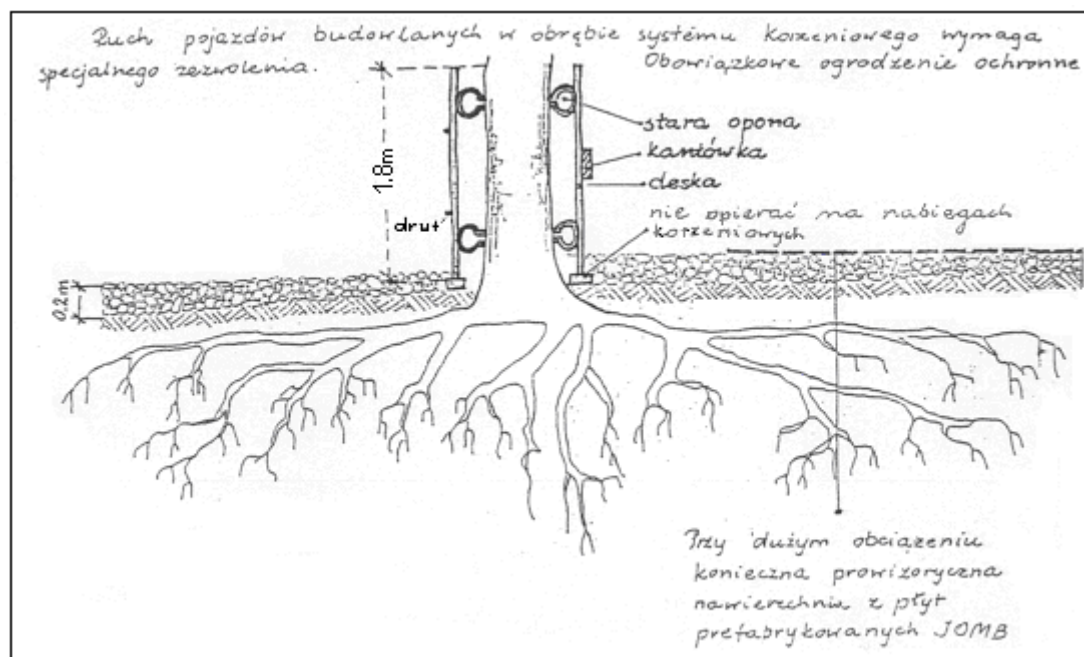 Ruch pojazdów budowlanych w obrębie systému korzeniowego wymaga
specjalnego zezwolenia. Obowiązkowe ogrodzenie ochronne
stara opona
kantówka
deska
nie opierać na nabiegach
korzeniowych
1.8m
drut
0,2 m
Przy dużym obciążeniu
konieczna prowizoryczna
nawierzchnia z płyt
prefabrykowanych JOMB